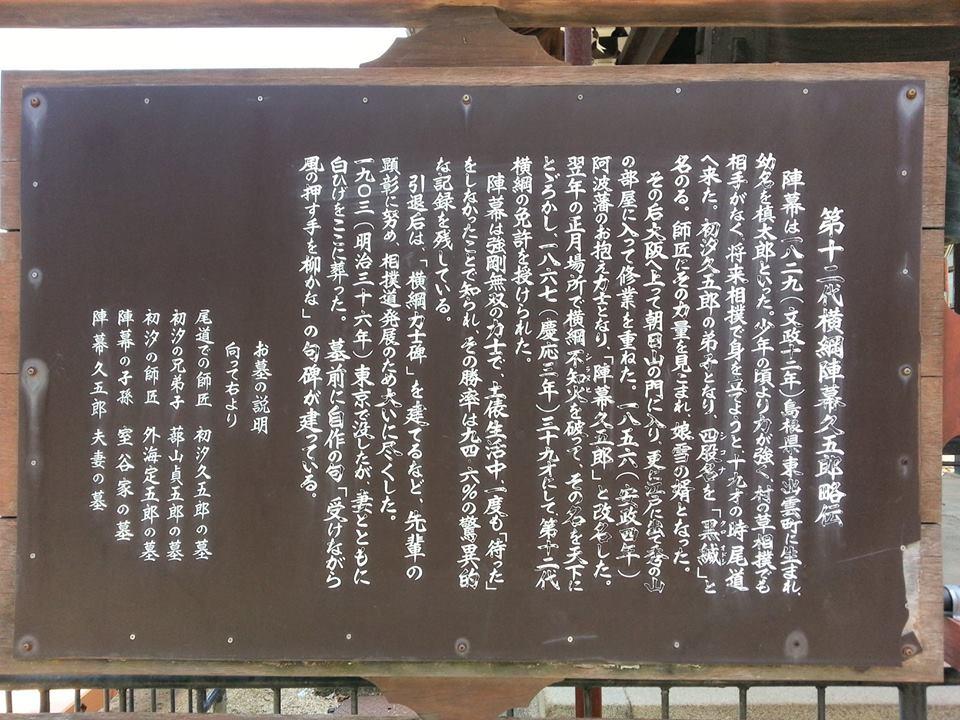 第十二代横綱陣幕久五郎略伝
陣幕は一八二九(文政十二年)島根県東出雲町に生まれ、
幼名を槙太郎といった。少年の頃より力が強く、村の草相撲でも
相手がなく、将来相撲で身を立てようと十九才の時尾道
へ来た。初汐久五郎の弟子となり、四股名を「黒縅」と
シコナ
クロオドシ
名のる。師匠にその力量を見こまれ、娘雪の婿となった。
その后大阪へ上って朝日山の門に入り、更に江戸に出て秀の山
の部屋に入って修業を重ねた。一八五六(安政四年)
阿波藩のお抱え力士となり、「陣幕久五郎」と改名した。
翌年の正月場所で横綱不知火を破って、その名を天下に
シラヌヒ
とどろかし、一八六七(慶応三年)三十九才にして、第十二代
横綱の免許を授けられた。
陣幕は強剛無双の力士で、土俵生活中、一度も「待った」
をしなかったことで知られ、その勝率は九四・六%の驚異的
な記録を残している。
引退后は、「横綱力士碑」を建てるなど、先輩の
顕彰に努め、相撲道発展のため大いに尽くした。
一九〇三(明治三十六年)東京で没したが、妻とともに
白ひげをここに葬った。墓前に自作の句「受けながら
風の押す手を柳かな」の句碑が建っている。
お墓の説明
向って右より
尾道での師匠 初汐久五郎の墓
初汐の兄弟子 蕣山貞五郎の墓
初汐の師匠 外海定五郎の墓
陣幕の子孫 室谷家の墓
陣幕久五郎 夫妻の墓